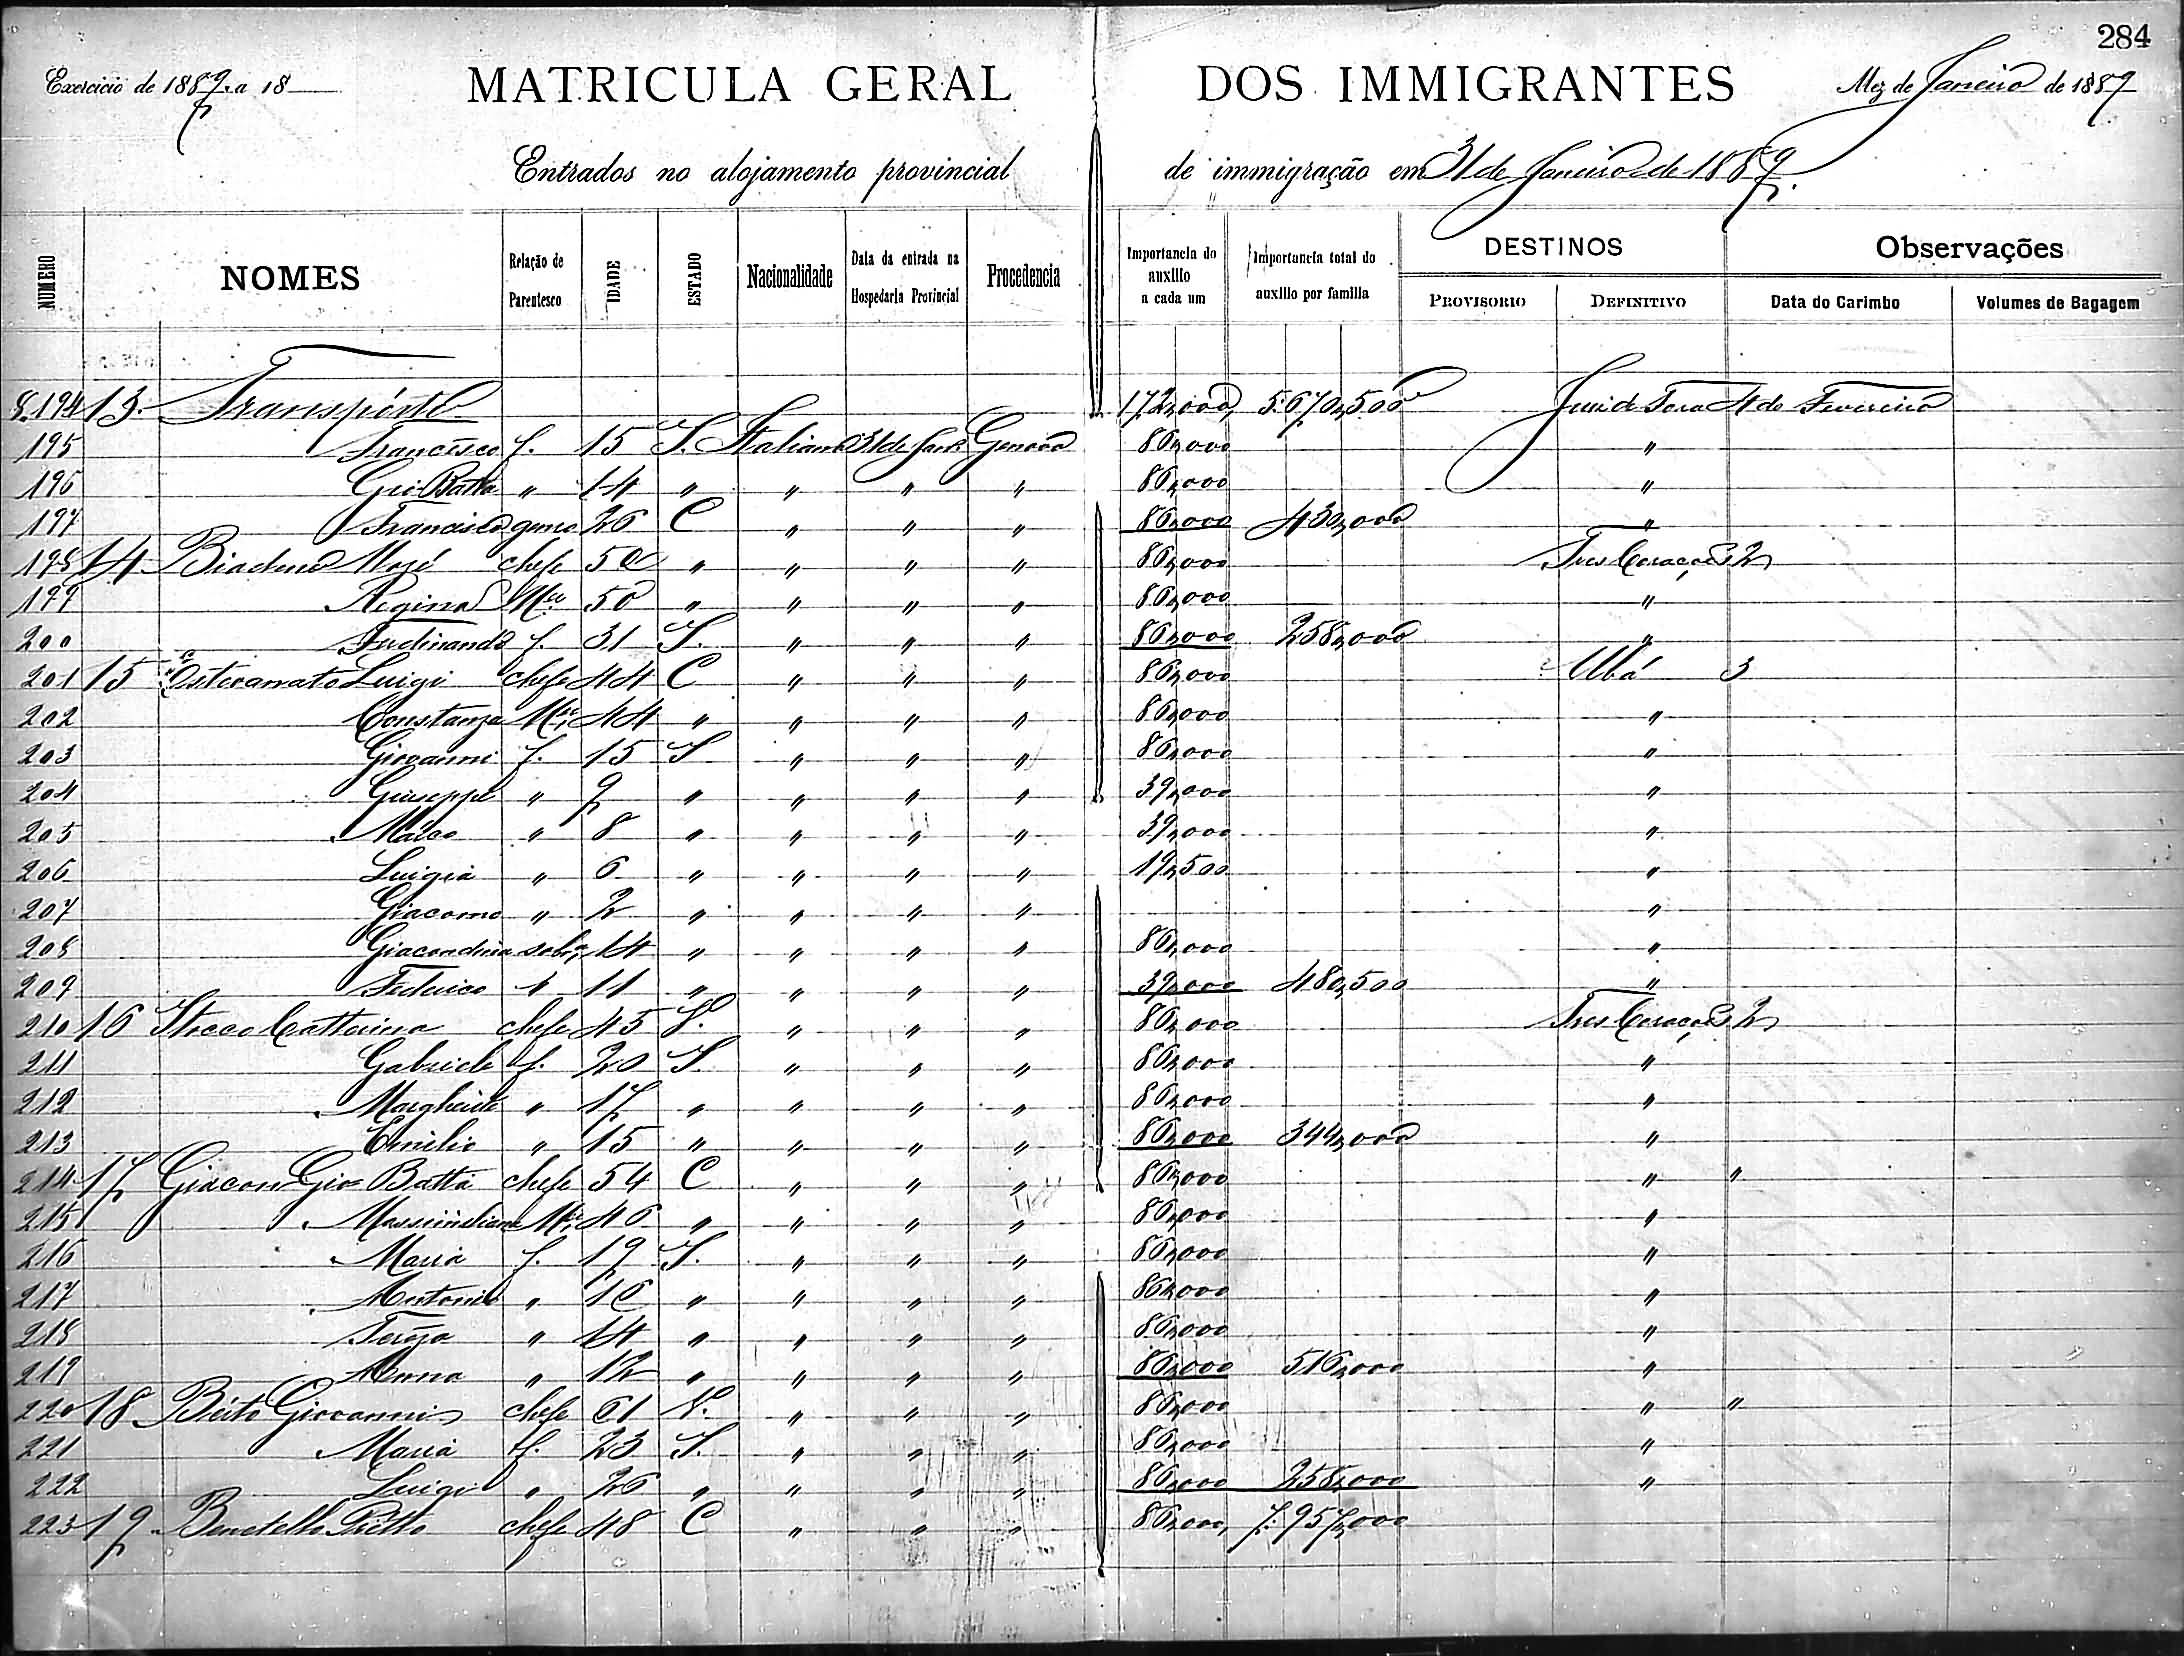 284
Exercicio de 1889 a 18
MATRICULA GERAL DOS IMMIGRANTES
Mez de Janeiro de 1889
Entrados no alojamento provincial de immigração em 31 de Janeiro de 1889.
NUMERO NOMES Relação de Parentesco IDADE ESTADO Nacionalidade Data da entrada na Hospedaria Provincial Procedencia Importancia do auxilio a cada um Importancia total do auxilio por familia DESTINOS PROVISORIO DEFINITIVO Observações Data do Carimbo Volumes de Bagagem
194 13 Transporte 172,000 5:670,500 Juiz de Fora 4 de Fevereiro
195 Francesco f. 15 S. Italiana 31 de Janº Genova 86,000 "
196 Gio Batta " 14 " " " " 86,000 "
197 Francisco genro 26 C " " " 86,000 430,000 "
198 14 Biadene Mosé chefe 50 " " " " 86,000 Tres Corações 2
199 Regina Mer 50 " " " " 86,000 "
200 Ferdinando f. 31 S. " " " 86,000 258,000 "
201 15 Luigi chefe 44 C " " " 86,000 Ubá 3
202 Constanza Mer 44 " " " " 86,000 "
203 Giovanni f. 15 S " " " 86,000 "
204 Giuseppe " 9 " " " " 39,000 "
205 Marco " 8 " " " " 39,000 "
206 Luigia " 6 " " " " 19,500 "
207 Giacomo " 2 " " " " "
208 sobra 14 " " " " 86,000 "
209 Federico " 11 " " " " 39,000 480,500 "
210 16 Stecco Catterina chefe 45 " " " 86,000 Tres Corações 2
211 Gabriele f. 20 S " " " 86,000 "
212 Margherite " 17 " " " " 86,000 "
213 Emilio " 15 " " " " 86,000 344,000 "
214 17 Giacon Gio Batta chefe 54 C " " " 86,000 " "
215 Massimiliana Mer 46 " " " " 86,000 "
216 Maria f. 19 S. " " " 86,000 "
217 Antonio " 16 " " " " 86,000 "
218 Tereza " 14 " " " " 86,000 "
219 Anna " 12 " " " " 86,000 516,000 "
220 18 Giovanni chefe 61 V. " " " 86,000 " "
221 Maria f. 23 S. " " " 86,000 "
222 Luigi " 26 " " " " 86,000 258,000 "
223 19 Benetello Pietro chefe 48 C " " " 86,000, 7:957,000